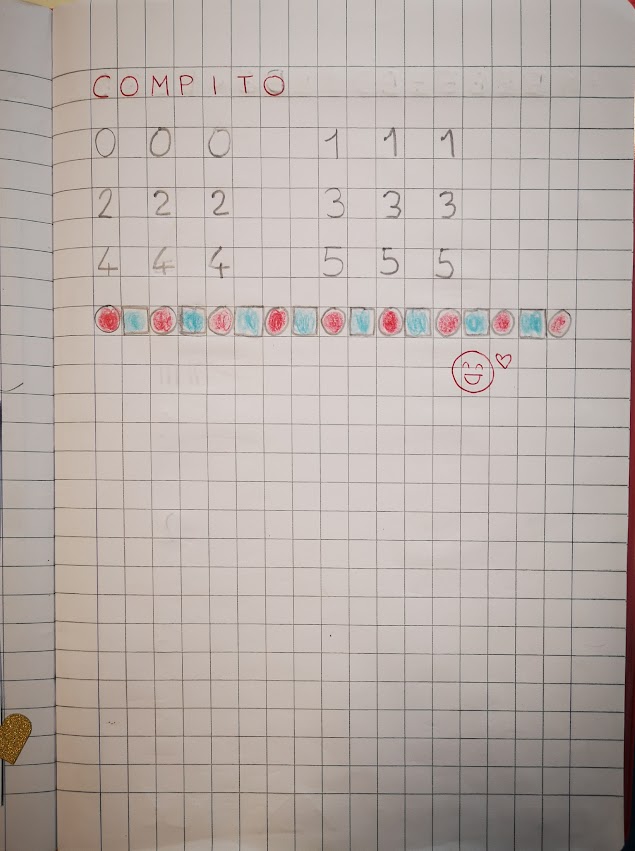 COMPITO
0 0 0 1 1 1
2 2 2 3 3 3
4 4 4 5 5 5